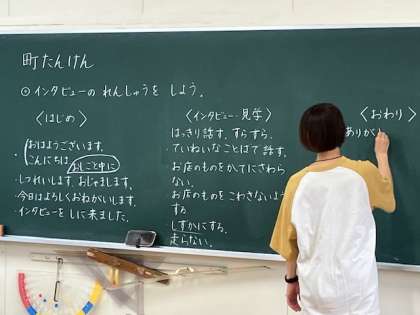 町たんけん
⊙インタビューの れんしゅうを しよう。
〈はじめ〉
おはようございます。
こんにちは
おしごと中に
・しつれいします。おじゃまします。
・今日はよろしくおねがいします。
・インタビューをしに来ました。
〈インタビュー・見学〉
はっきり話す。すらすら。
・ていねいなことばで 話す。
お店のものをかってにさわら
ない。
お店のものを こわさないよう
する
しずかにする。
走らない。
〈おわり〉
ありがと